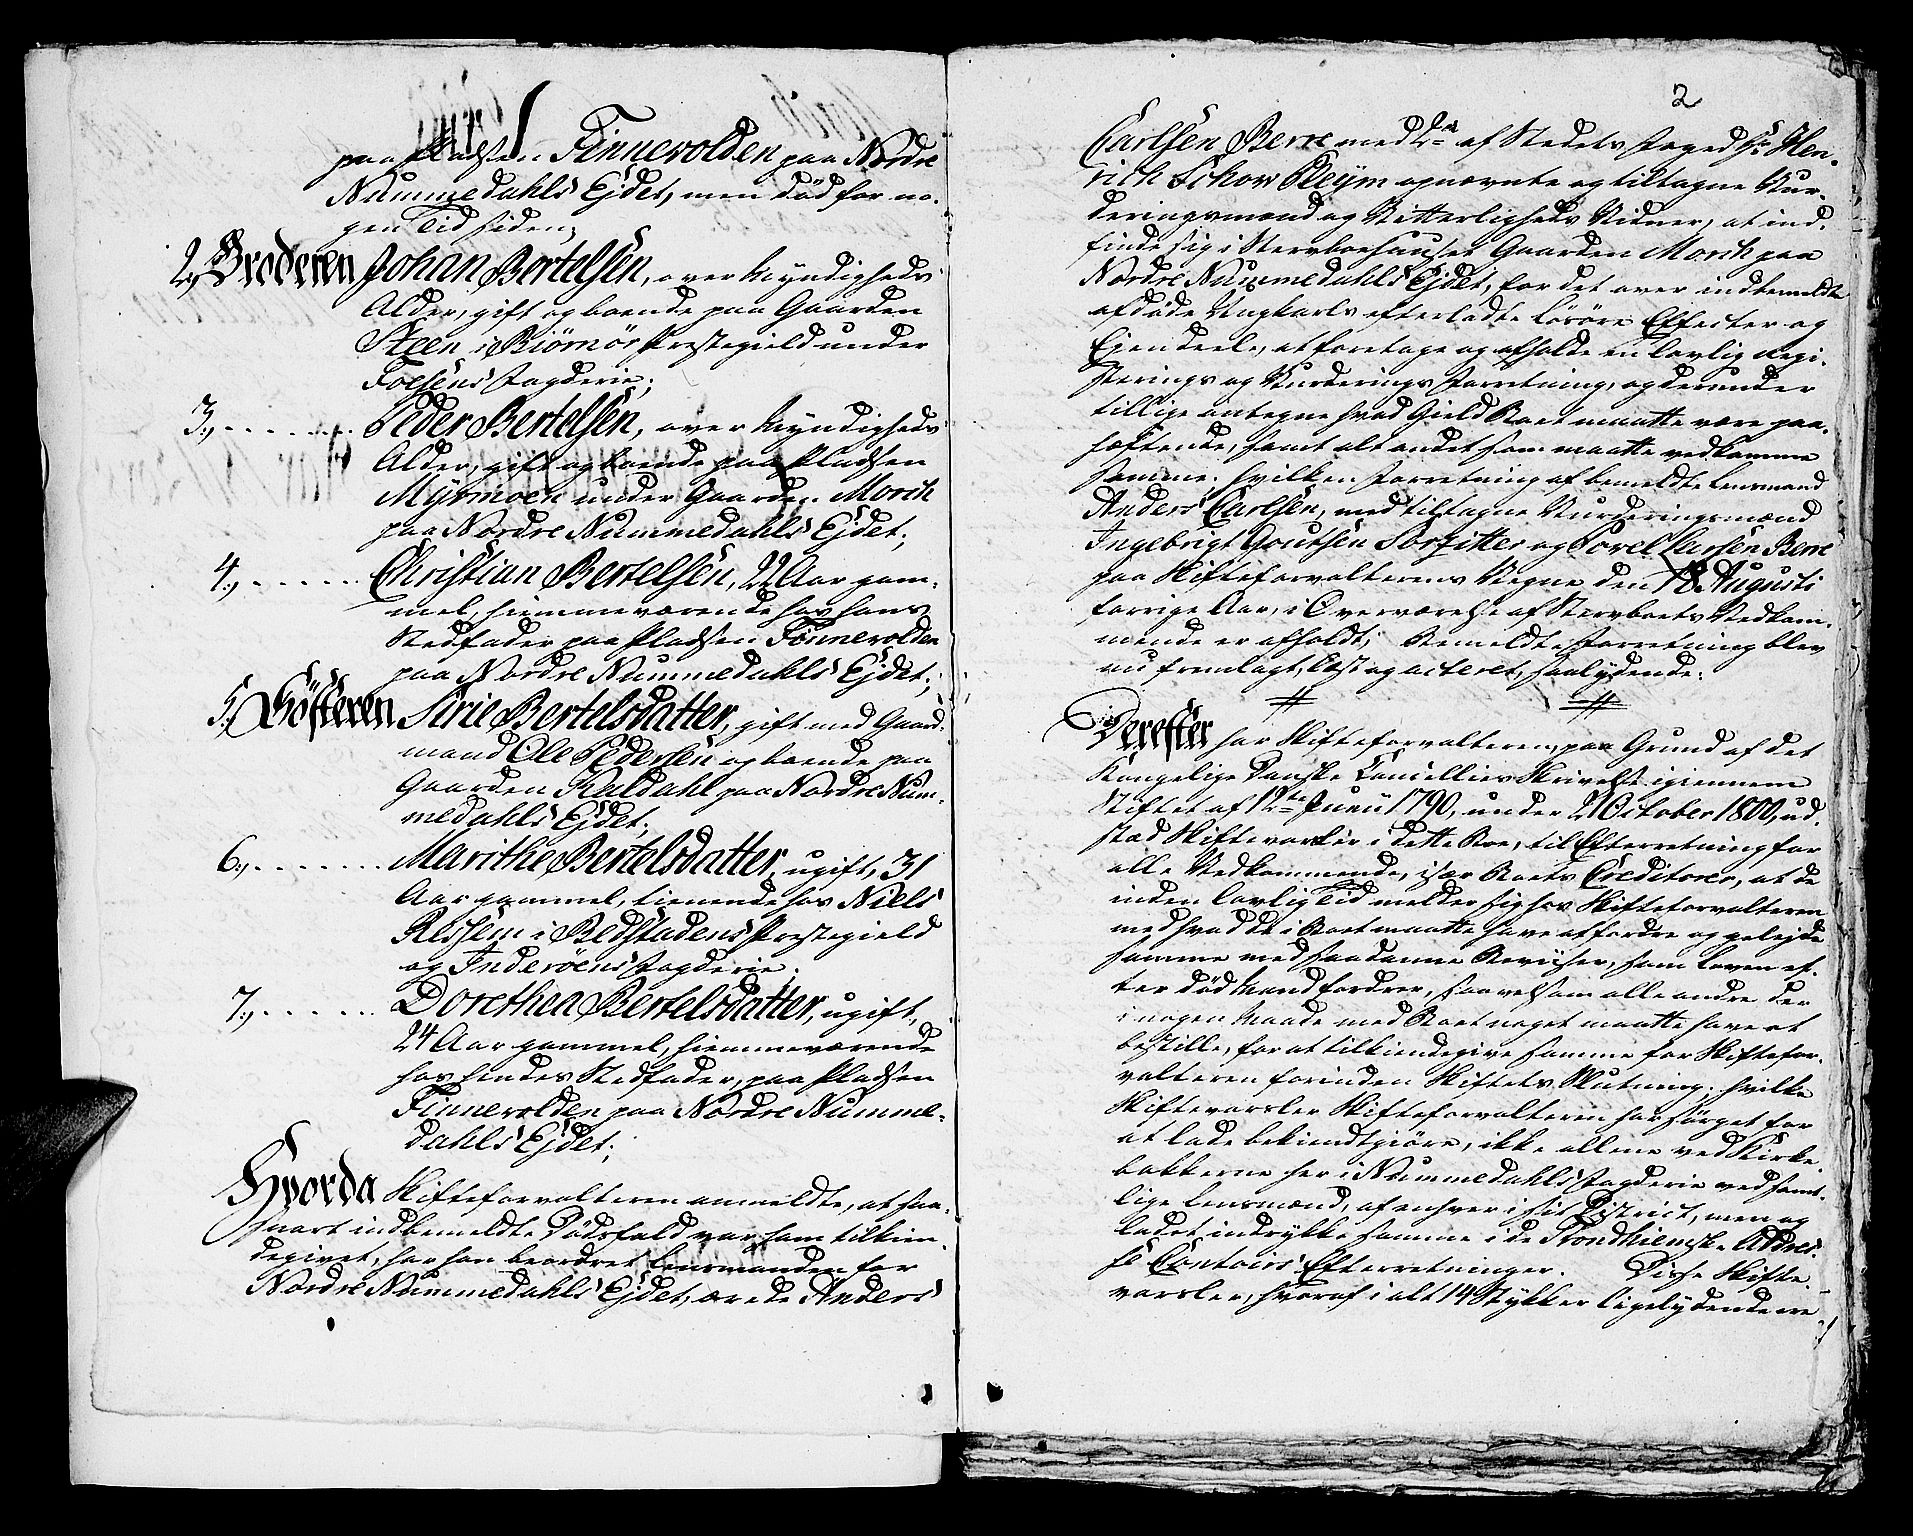 paa Pladsen Finnevolden paa Nordre
Nummedahls Ejdet, men død for no-
gen Tid siden;
2, Broderen Johan Bertelsen, over Myndigheds
Alder, gift og boende paa Gaarden
Steen i Biørnør Præstegield under
Foesens Fogderie;
3., Peder Bertelsen, over Myndigheds
Alder, gift og boende paa Pladsen
Myrmoen under Gaarden Morch
paa Nordre Nummedahls Ejdet;
4., Christian Bertelsen, 22 Aar gam-
mel, hiemmeværende hos hans
Stedfader paa Pladsen Finnevolden
paa Nordre Nummedahls Ejdet;
5., Søsteren Sirie Bertelsdatter, gift med Gaard-
mand Ole Pedersen og boende paa
Gaarden Kaldahl paa Nordre Num-
medahls Ejdet;
6., Marithe Bertelsdatter, ugift, 31
Aar gammel, tienende hos Niels
Ressem i Bedstadens Præstegield
og Inderøens Fogderie;
7., Dorethea Bertelsdatter, ugift,
24 Aar gammel, hiemmeværende
hos hendes Stedfader, paa Pladsen
Finnevolden paa Nordre Numme-
dahls Ejdet;
Hvorda Skifteforvalteren anmeldte, at saa-
snart indbemeldte Dødsfald var ham tilkien-
degivet, har han beordret Lensmanden for
Nordre Nummedahls Ejdet, ærede Anders
2
Carlsen Berre med 2de af Stedets Foged Hr Hen-
rich Schow Fleÿm opnævnte og tiltagne Vur-
deringsmænd og Vitterligheds Vidner, at ind-
finde sig i Stervboehuuset Gaarden Morch paa
Nordre Nummedahls Ejdet, for det over indbemeldte
afdøde Ungkarls efterladte Løsøre Effecter og
Ejendeele, at foretage og afholde en lovlig Regi-
strerings og Vurderings Forretning, og derunder
tillige antegne hvad Gield Boet maatte være paa-
hæftende, samt alt andet som maatte vedkomme
samme; hvilken Forretning af bemeldte Lensmand
Anders Carlsen, med tiltagne Vurderingsmænd
Ingebrigt Joutsen Sorfitter og Povel Larsen Berre
paa Skifteforvalterens Vegne den 18 Augusti
forrige Aar, i Overværelse af Stervboets Vedkom-
mende er afholdt; Bemeldte Forretning blev
nu fremlagt, læst og acteret, saalydende:
Derefter har Skifteforvalteren, paa Grund af det
Kongelige Danske Cancellies Skrivelse igiennem
Stiftet af 12te Junii 1790, under 2 October 1800, ud-
stæd Skiftevarsler i dette Boe, til Efterretning for
alle Vedkommende, især Boets Creditorer, at de
inden lovlig Tid melder sig hos Skifteforvalteren
med hvad de i Boet maatte have at fordre og gelejde
samme med saadanne Beviiser, som Loven ef-
ter død Mand fordrer, saavelsom alle andre der
i nogen Maade med Boet noget maatte have at
bestille, for at tilkiendegive samme for Skiftefor-
valteren forinden Skiftets Slutning; hvilke
Skiftevarsler Skifteforvalteren har sørget for
at lade bekiendtgiøre, ikke allene ved Kirke-
bakkerne her i Nummedahls Fogderie ved samt-
lige Lensmænd, af enhver i sit District, men og
ladet indrykke samme i de Trondhiemske Addres-
se Contoirs Efterretninger. Disse Skifte-
varsler, hvoraf i alt 14 Stykker ligelydende ere